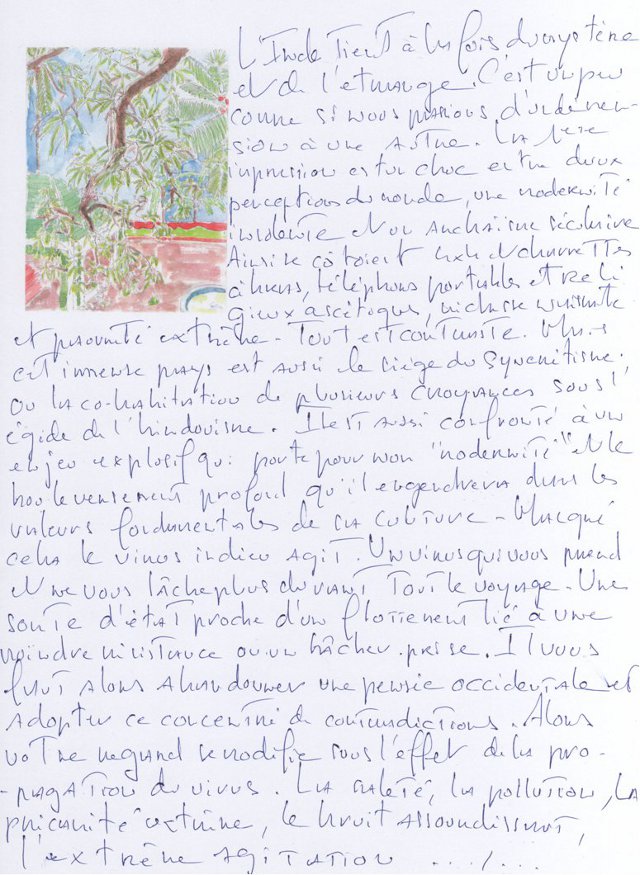 L'Inde tient à la fois du mystère
et de l'étrange. C'est un peu
comme si nous passions d'une dimen-
sion à une autre. La 1ère
impression est un choc entre deux
perceptions du monde, une modernité
insolente et un archaïsme séculaire
Ainsi se côtoient et charrettes
à bras, téléphones portables et reli
gieux ascétiques, richesse insolente
et pauvreté extrême - Tout est contraste. Mais
cet immense pays est aussi le siège du syncrétisme.
Ou la co-habitation de plusieurs croyances sous l'
égide de l'hindouisme. Il est aussi confronté à un
enjeu explosif qui porte pour nom "modernité" et le
bouleversement profond qu'il engendrera dans les
valeurs fondamentales de sa culture - Malgré
cela le virus indien agit. Un virus qui vous prend
et ne vous lâche plus durant tout le voyage - Une
sorte d'état proche d'un flottement lié à une
moindre résistance ou un lâcher-prise. Il vous
faut alors abandonner une pensée occidentale et
adopter ce concentré de contradictions. Alors
votre regard se modifie sous l'effet de la pro-
-pagation du virus. La saleté, la pollution, la
précarité extrême, le bruit assourdissant,
l'extrême agitation .../...